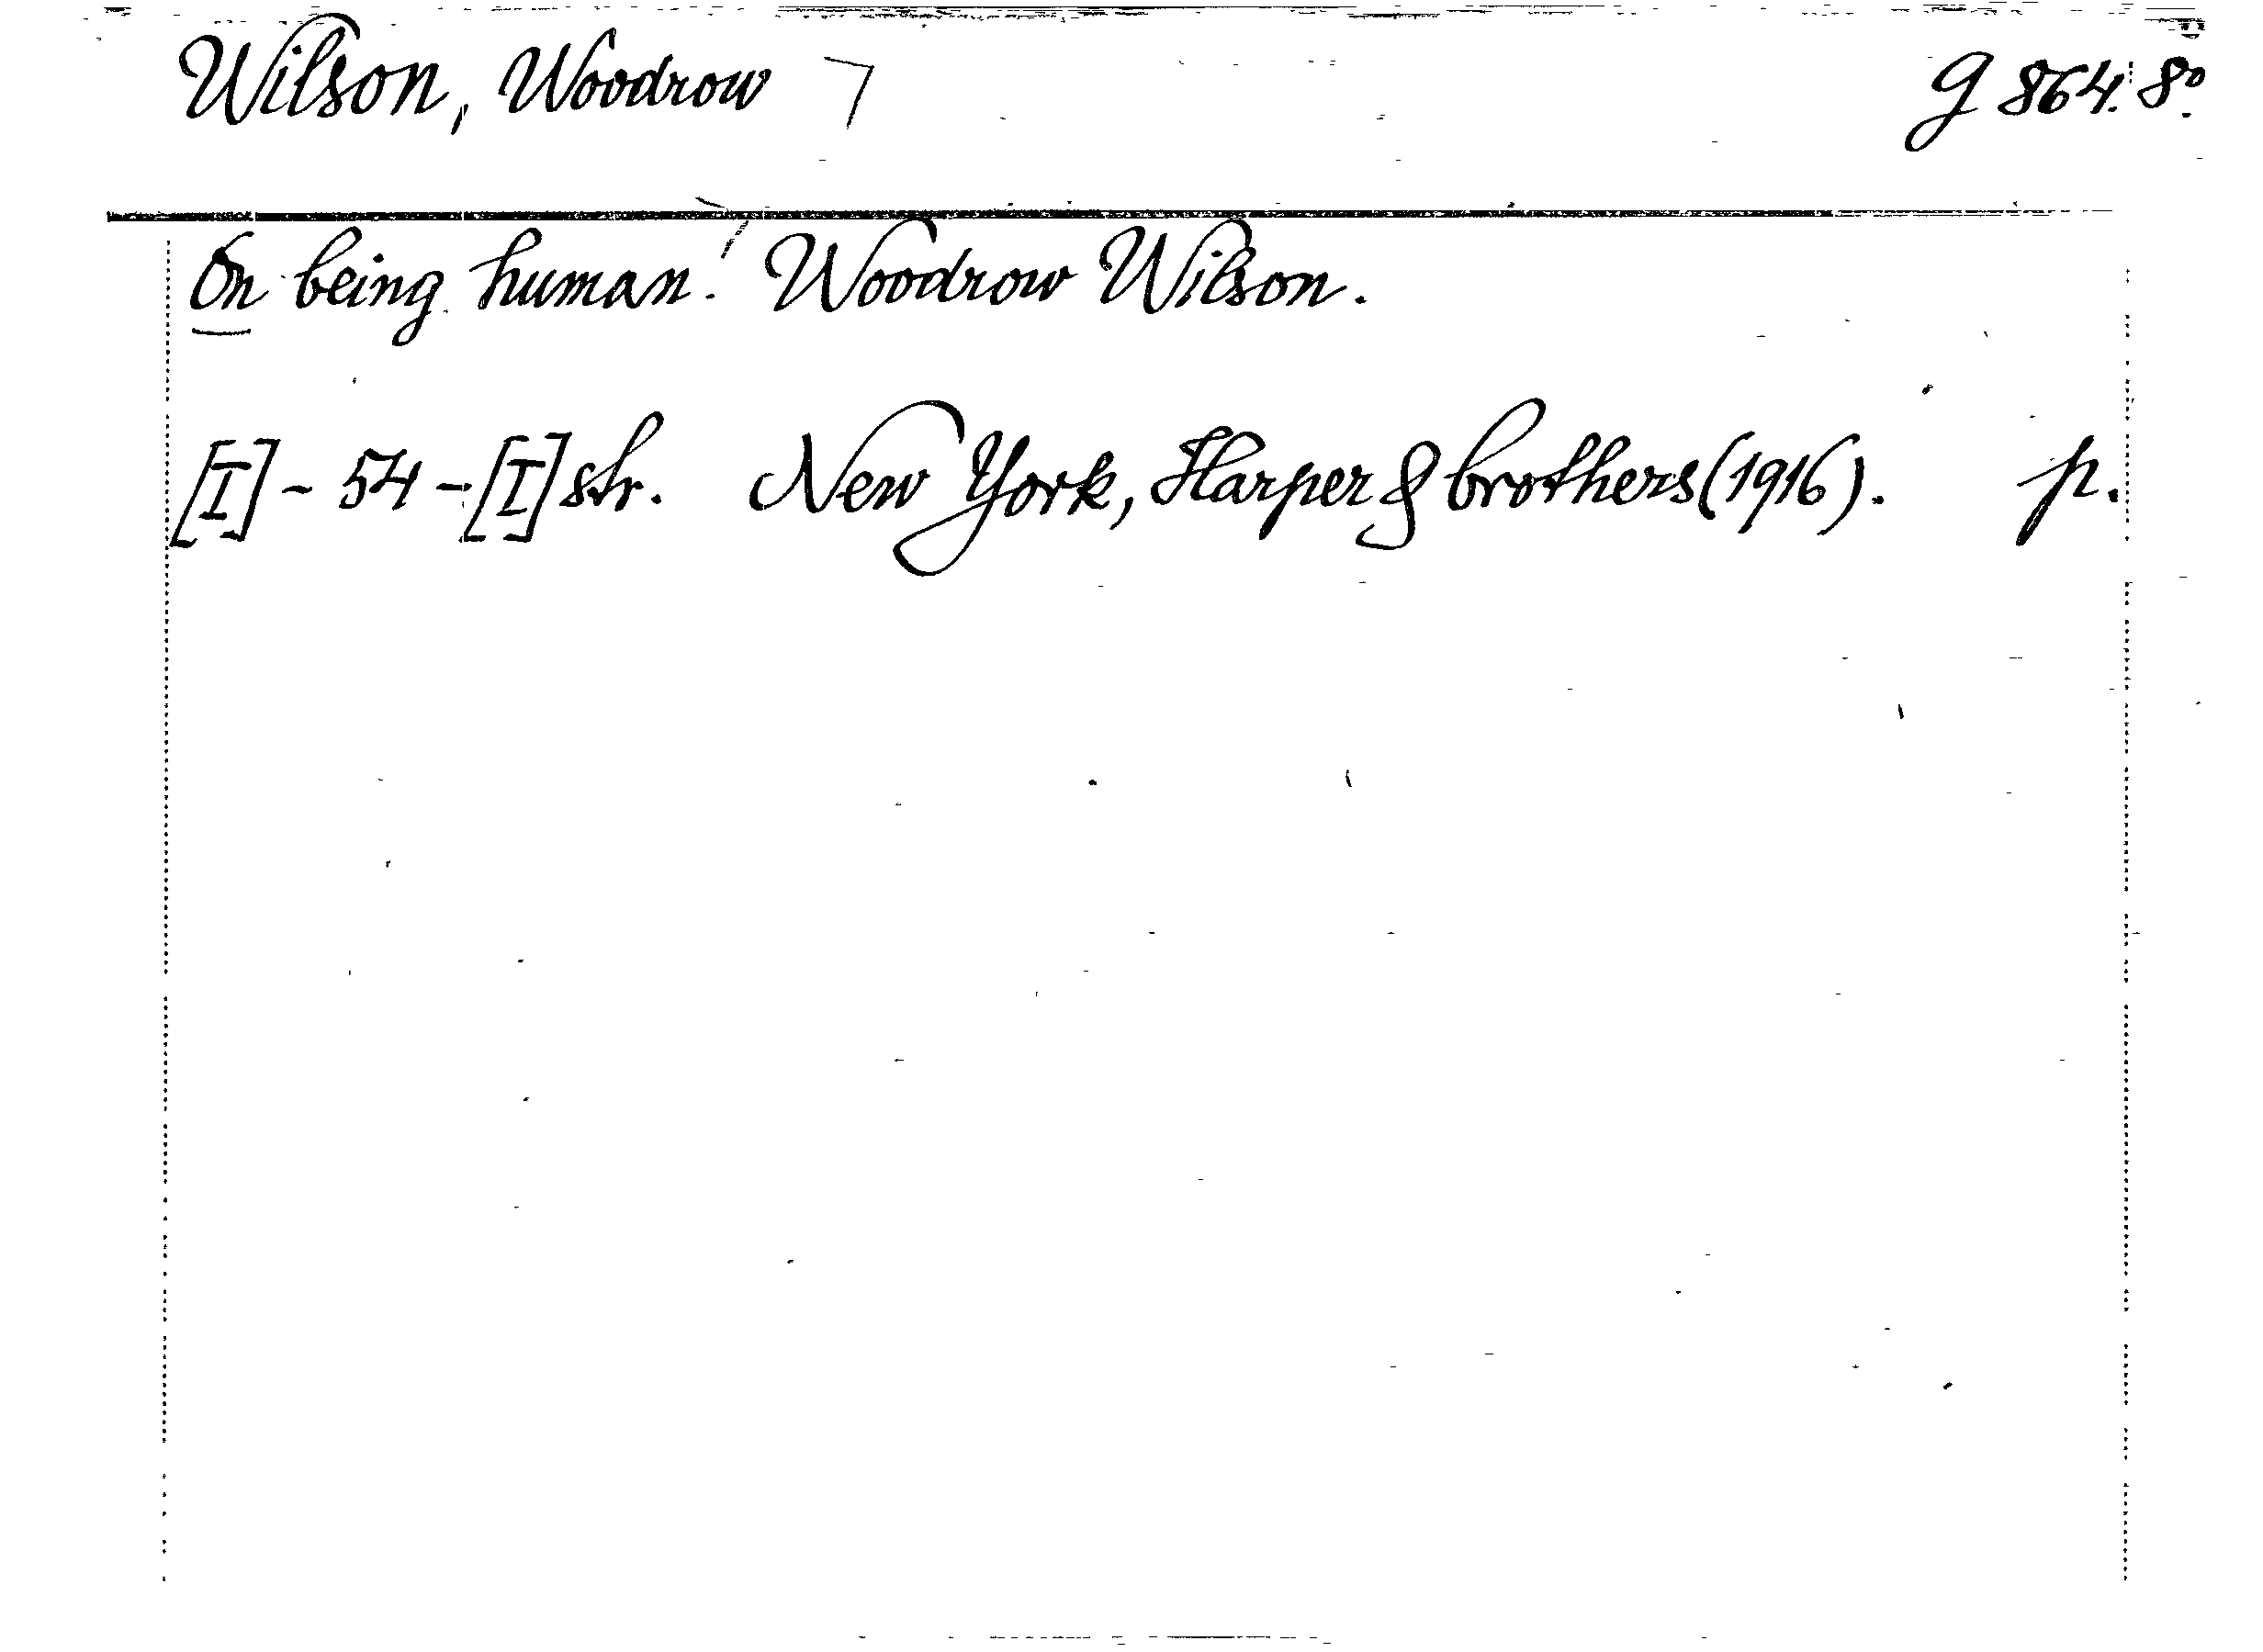 Wilson, Woodrow g 864. 8º
On being human. Woodrow Wilson.
[I] - 54 - [I] str. New York, Harper & brothers (1916). p.